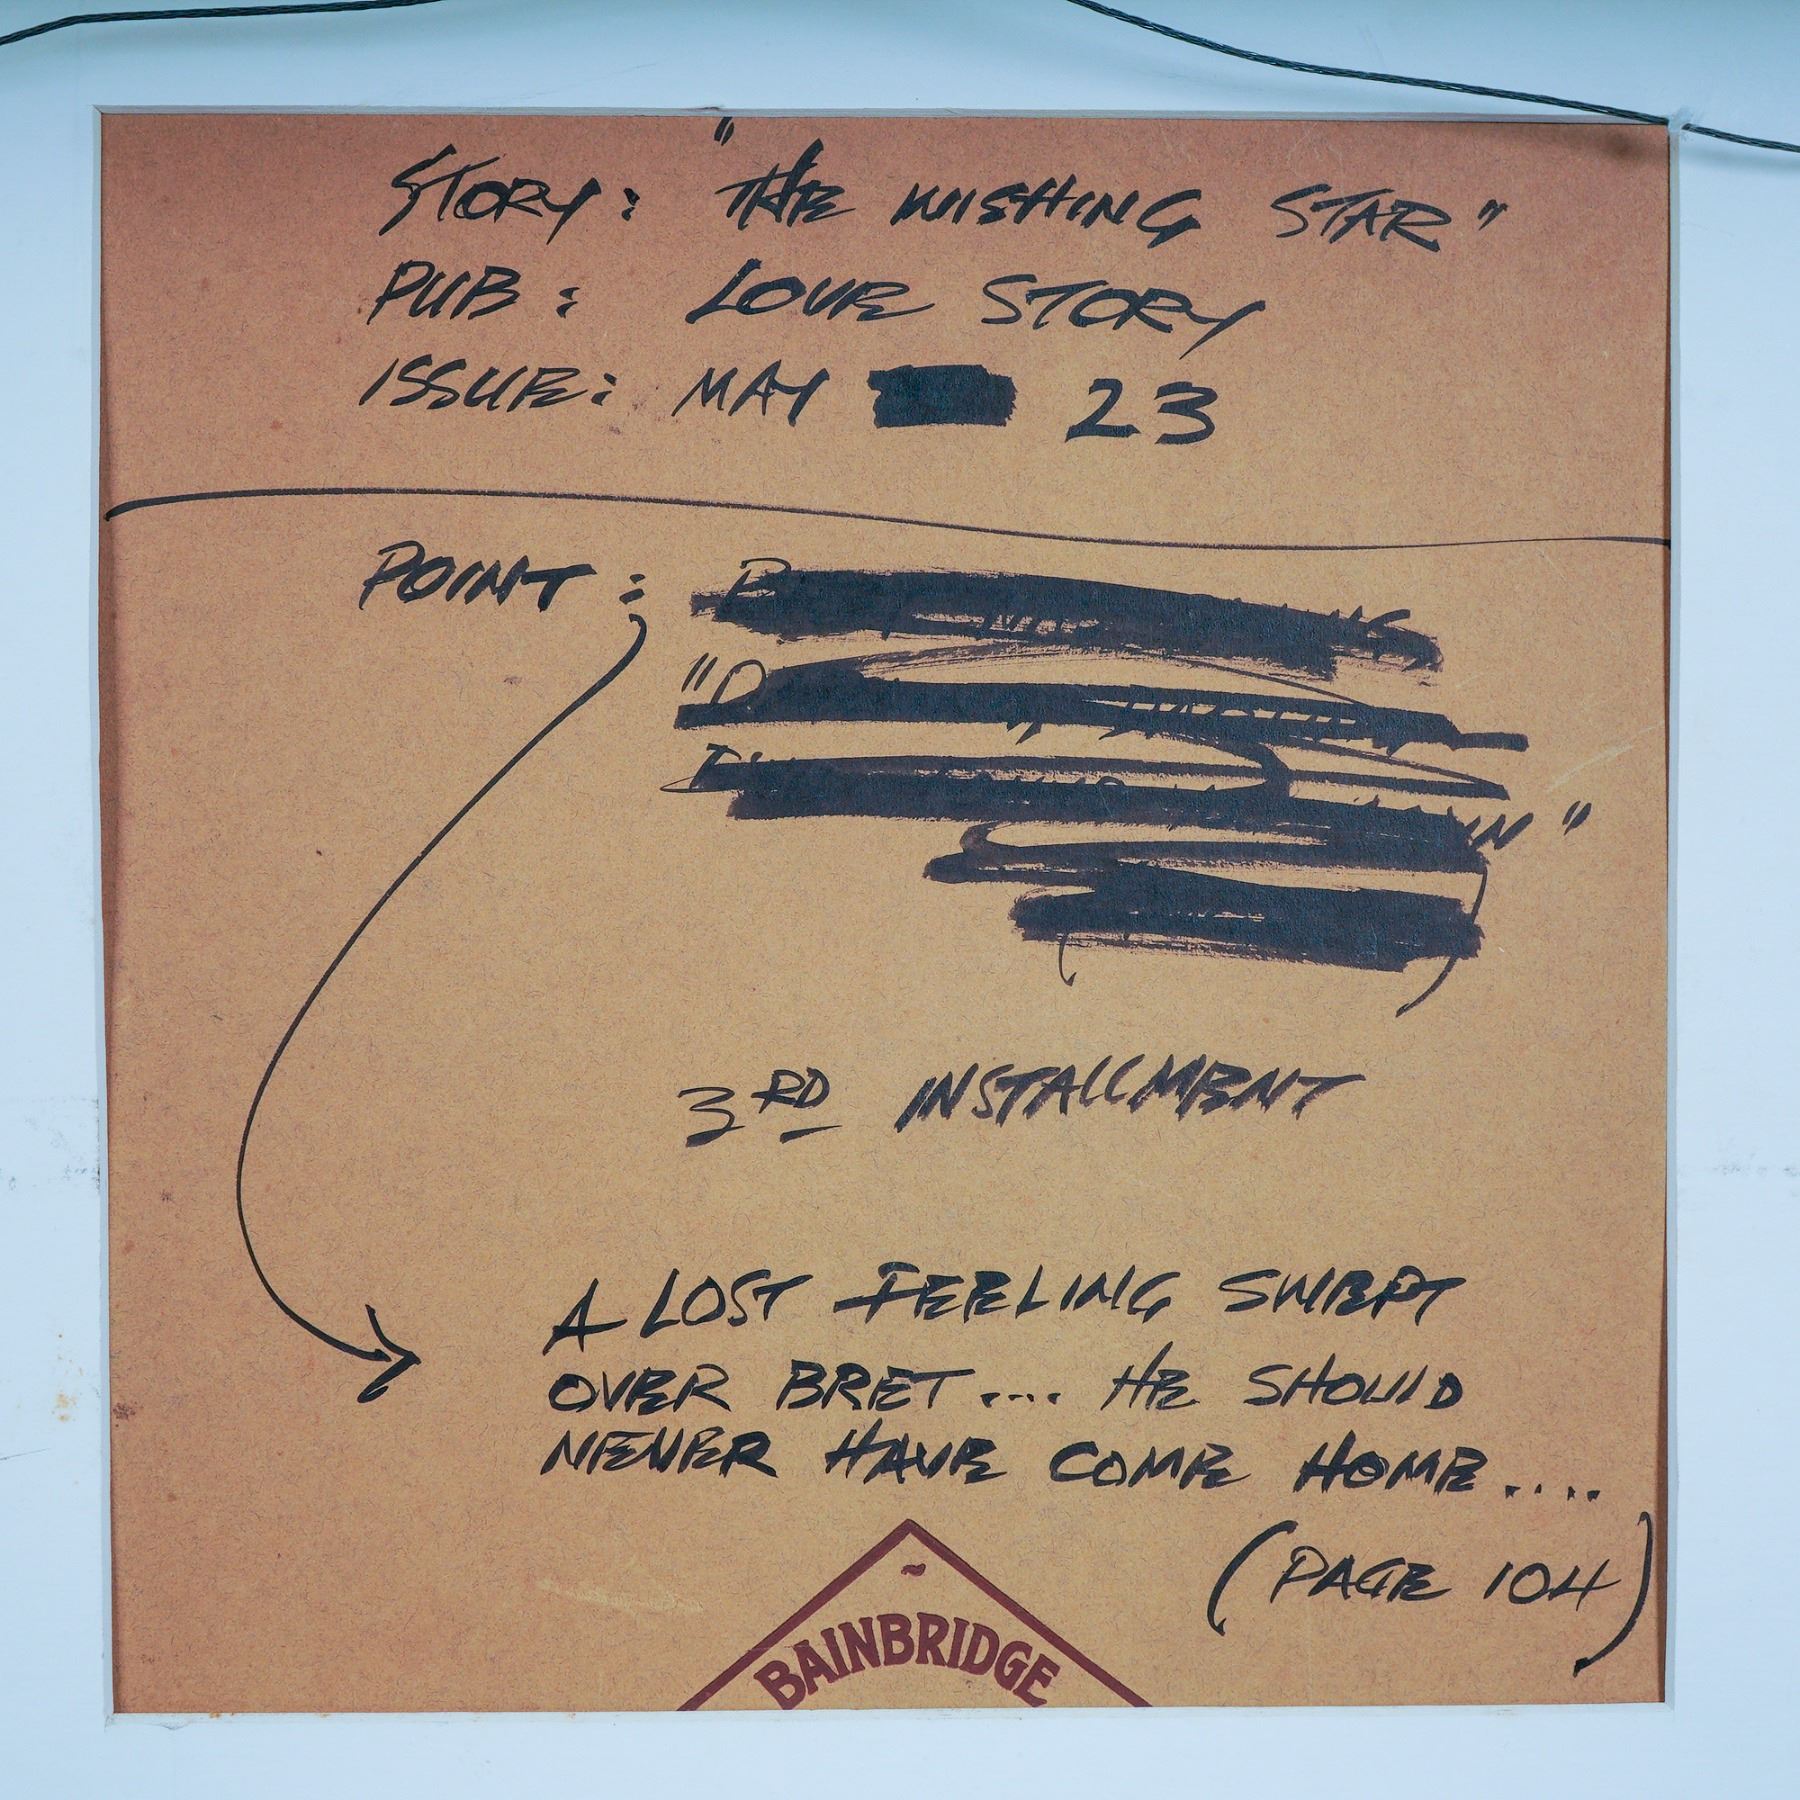 STORY: "THE WISHING STAR"
PUB: LOVE STORY
ISSUE: MAY 23
POINT:
3RD INSTALLMENT
A LOST FEELING SWEPT
OVER BRET.... HE SHOULD
NEVER HAVE COME HOME....
(PAGE 104)
BAINBRIDGE